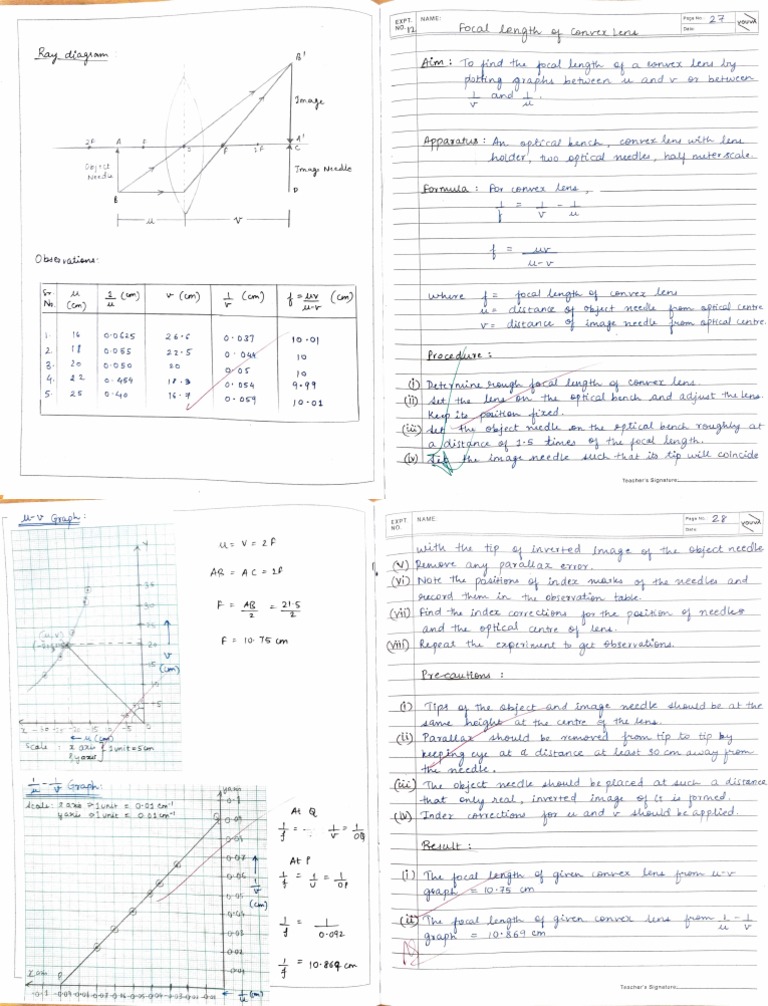 Ray diagram:
B'
Image
2F A F O F 2F A'
C
Object
Needle
Image Needle
B
D
u v
Observations:
Sr. No. u (cm) 1/u (cm) v (cm) 1/v (cm) f = uv/u-v (cm)
1. 16 0.0625 26.6 0.037 10.01
2. 18 0.055 22.5 0.044 10
3. 20 0.050 20 0.05 10
4. 22 18.3 0.054 9.99
5. 25 0.40 16.7 0.059 10.01
EXPT. NO. 12 NAME: Focal length of Convex Lens Page No. 27
Date: YOUVA
Aim: To find the focal length of a convex lens by
plotting graphs between u and v or between
1/v and 1/u.
Apparatus: An optical bench, convex lens with lens
holder, two optical needles, half meter scale.
Formula: For convex lens,
1/f = 1/v - 1/u
f = uv/u-v
where f = focal length of convex lens
u = distance of object needle from optical centre
v = distance of image needle from optical centre.
Procedure:
(i) Determine rough focal length of convex lens.
(ii) Set the lens on the optical bench and adjust the lens.
Keep its position fixed.
(iii) Set the object needle on the optical bench roughly at
a distance of 1.5 times of the focal length.
(iv) the image needle such that its tip will coincide
Teacher's Signature
u-v Graph:
Y
35
30
25
20
15
10
5
v
(cm)
(u,v)
X
u (cm)
Scale: x axis } 1 unit = 5 cm
& y axis
u = v = 2F
AB = AC = 2F
F = AB/2 = 21.5/2
F = 10.75 cm
1/u - 1/v Graph:
Scale: x axis → 1 unit = 0.01 cm⁻¹
y axis → 1 unit = 0.01 cm⁻¹
y axis
0.1
Q
0.09
0.07
0.06
0.05
0.04
0.03
0.02
0.01
1/v
(cm)
x axis
P
1/u (cm)
At Q
1/f = .. 1/v = 1/OQ
At P
1/f = 1/u = 1/OP
1/f = 1/0.092
1/f = 10.869 cm
EXPT. NO. NAME: Page No. 28
Date: YOUVA
with the tip of inverted image of the object needle
(v) Remove any parallax error.
(vi) Note the positions of index marks of the needles and
record them in the observation table.
(vii) Find the index corrections for the position of needles
and the optical centre of lens.
(viii) Repeat the experiment to get observations.
Precautions:
(i) Tips of the object and image needle should be at the
same height at the centre of the lens.
(ii) Parallax should be removed from tip to tip by
keeping eye at a distance at least 30 cm away from
the needle.
(iii) The object needle should be placed at such a distance
that only real, inverted image of it is formed.
(iv) Index corrections for u and v should be applied.
Result:
(i) The focal length of given convex lens from u-v
graph = 10.75 cm
(ii) The focal length of given convex lens from 1/u - 1/v
graph = 10.869 cm
Teacher's Signature